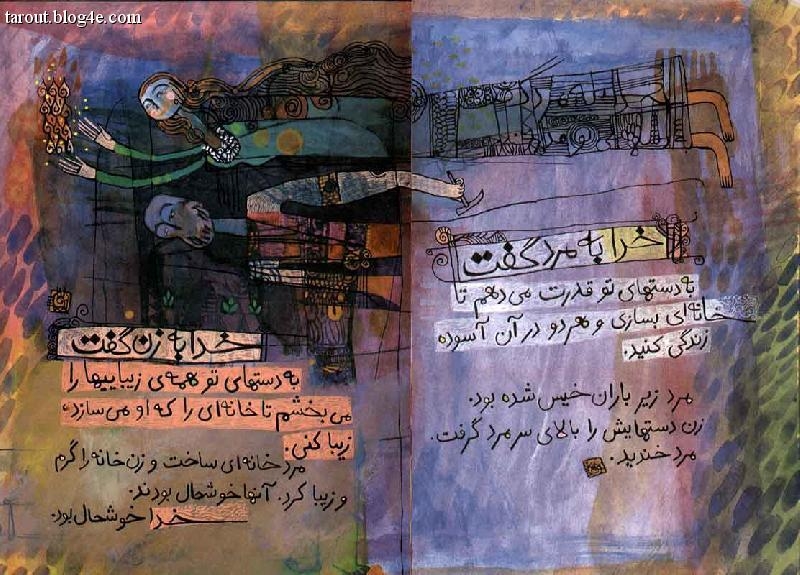 tarout.blog4e.com
خدا به مرد گفت
به دستهای تو قدرت می دهم تا
خانه ای بسازی و هر دو در آن آسوده
زندگی کنید.
مرد زیر باران خیس شده بود.
زن دستهایش را بالای سر مرد گرفت.
مرد خندید.
خدا به زن گفت
به دستهای تو همه ی زیباییها را
می بخشم تا خانه ای را که او می سازد،
زیبا کنی.
مرد خانه ای ساخت و زن خانه را گرم
و زیبا کرد. آنها خوشحال بودند.
خدا خوشحال بود.